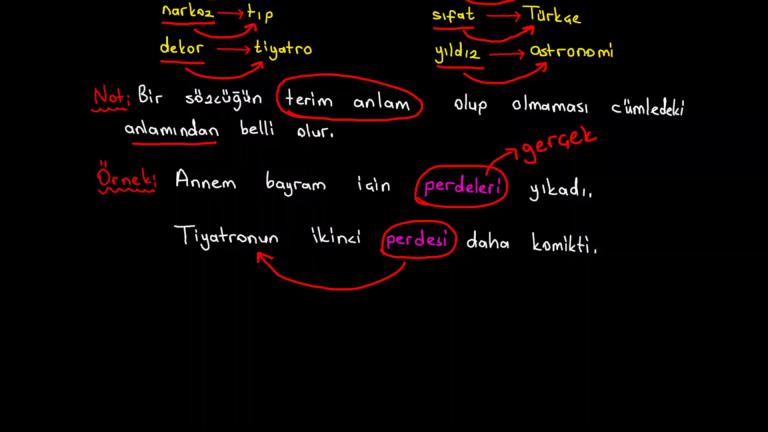 narkoz → tıp
sıfat → Türkçe
dekor → tiyatro
yıldız → astronomi
Not: Bir sözcüğün terim anlam olup olmaması cümledeki
anlamından belli olur.
gerçek
Örnek: Annem bayram için perdeleri yıkadı.
Tiyatronun ikinci perdesi daha komikti.